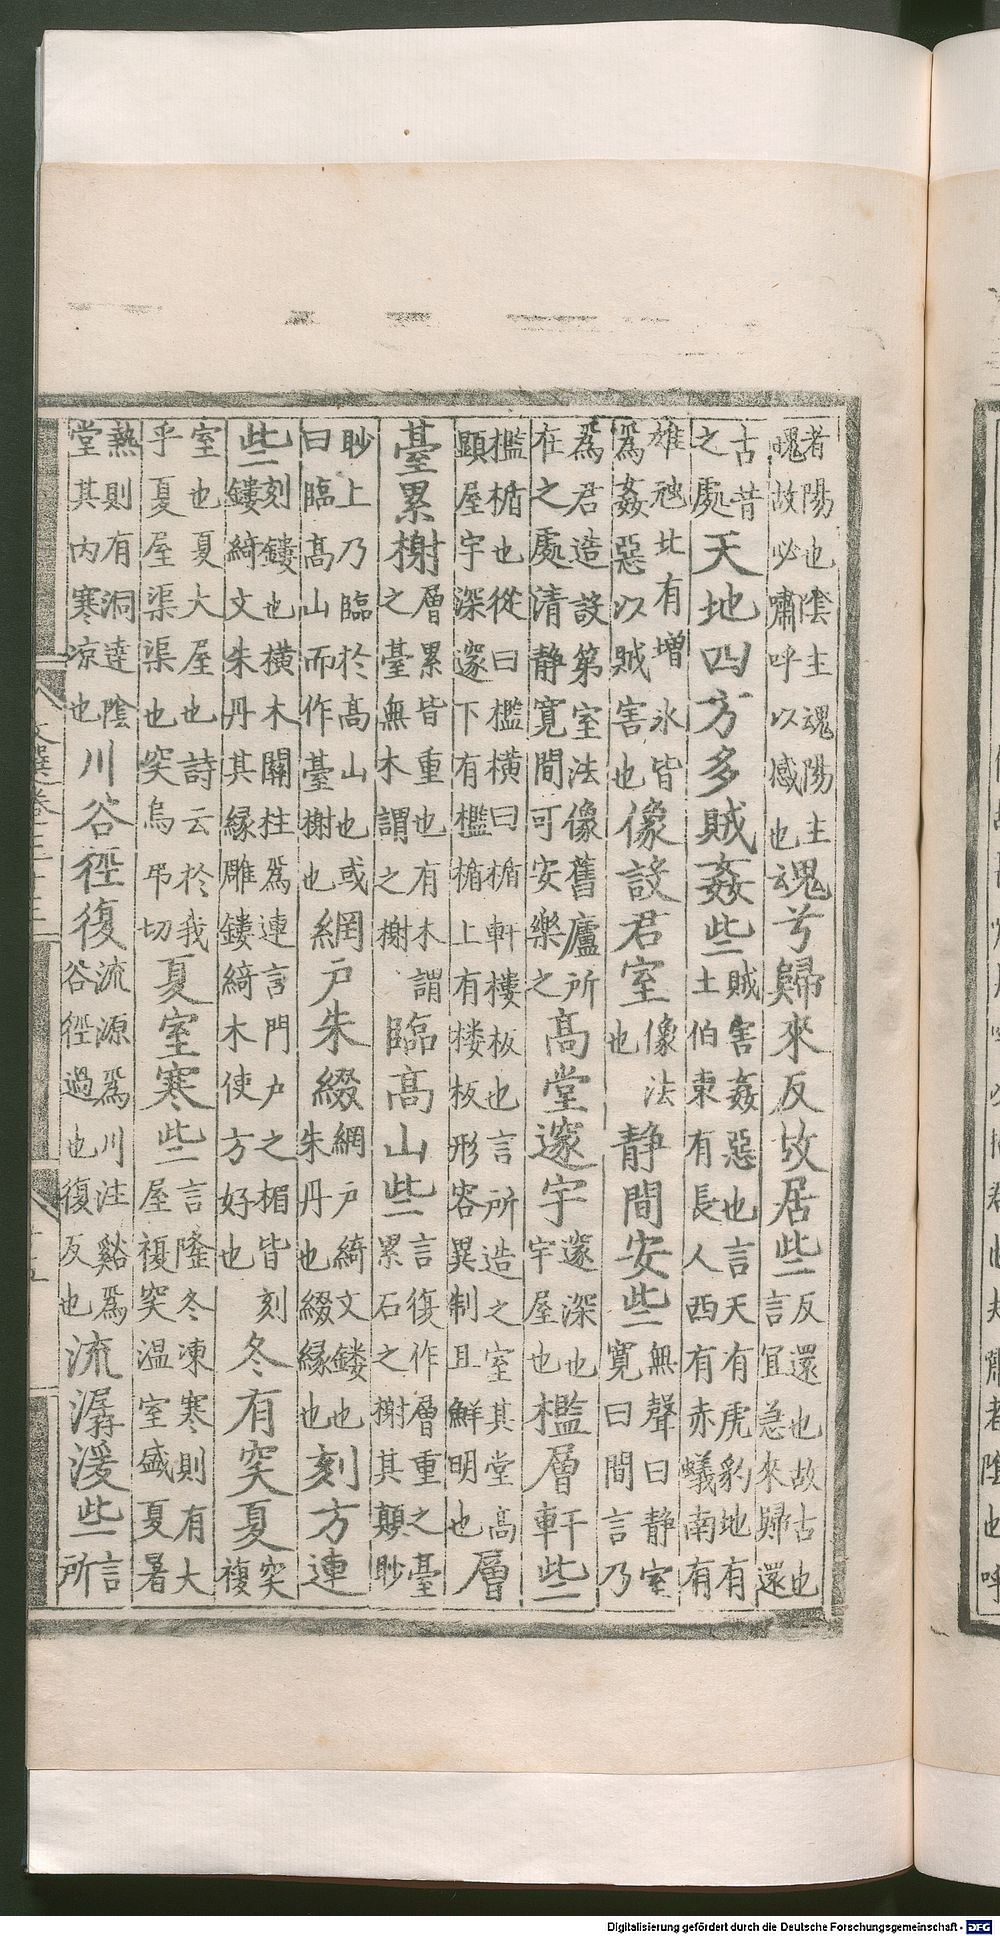 者陽也陰主魂陽主魄故必嘯呼以感也魂兮歸來反故居些反還也故古也言宜急來歸還
古昔之處天地四方多賊姦些賊害姦惡也言天有虎豹地有土伯東有長人西有赤蟻南有
雄虺北有增冰皆爲姦惡以賊害也像設君室像法也静閒安些無聲曰静室寬曰閒言乃
爲君造設第室法像舊廬所在之處清静寛閒可安樂之高堂邃宇邃深也宇屋也檻層軒些
檻楯也從曰檻橫曰楯軒樓板也言所造之室其堂高顯屋宇深邃下有檻楯上有楼板形容異制且鮮明也層
臺累榭層累皆重也有木謂之臺無木謂之榭臨高山些言復作層重之臺累石之榭其顛眇
眇上乃臨於高山也或曰臨高山而作臺榭也網户朱綴網户綺文鏤也朱丹也綴緣也刻方連
些刻鏤也橫木關柱爲連言門户之楣皆刻鏤綺文朱丹其緣雕鏤綺木使方好也冬有突夏突複
室也夏大屋也詩云於我乎夏屋渠渠也突烏弔切夏室寒些言隆冬凍寒則有大屋複突温室盛夏暑
熱則有洞達陰堂其内寒凉也川谷徑復流源爲川注谿爲谷徑過也復反也流潺湲些言所
文選卷三十三
Digitalisierung gefördert durch die Deutsche Forschungsgemeinschaft - DFG